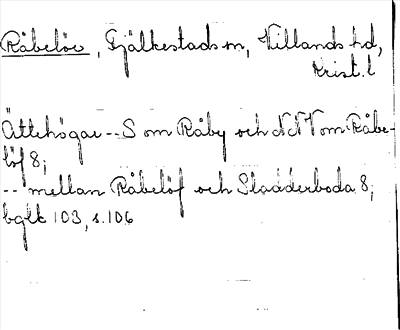 Råbelöv, Fjälkestads sn, Villands hd,
Krist. l
Ättehögar -- S om Råby och NNV om Råbe-
löf 8;
-- mellan Råbelöf och Sladderboda 8;
bglt 103, s. 106